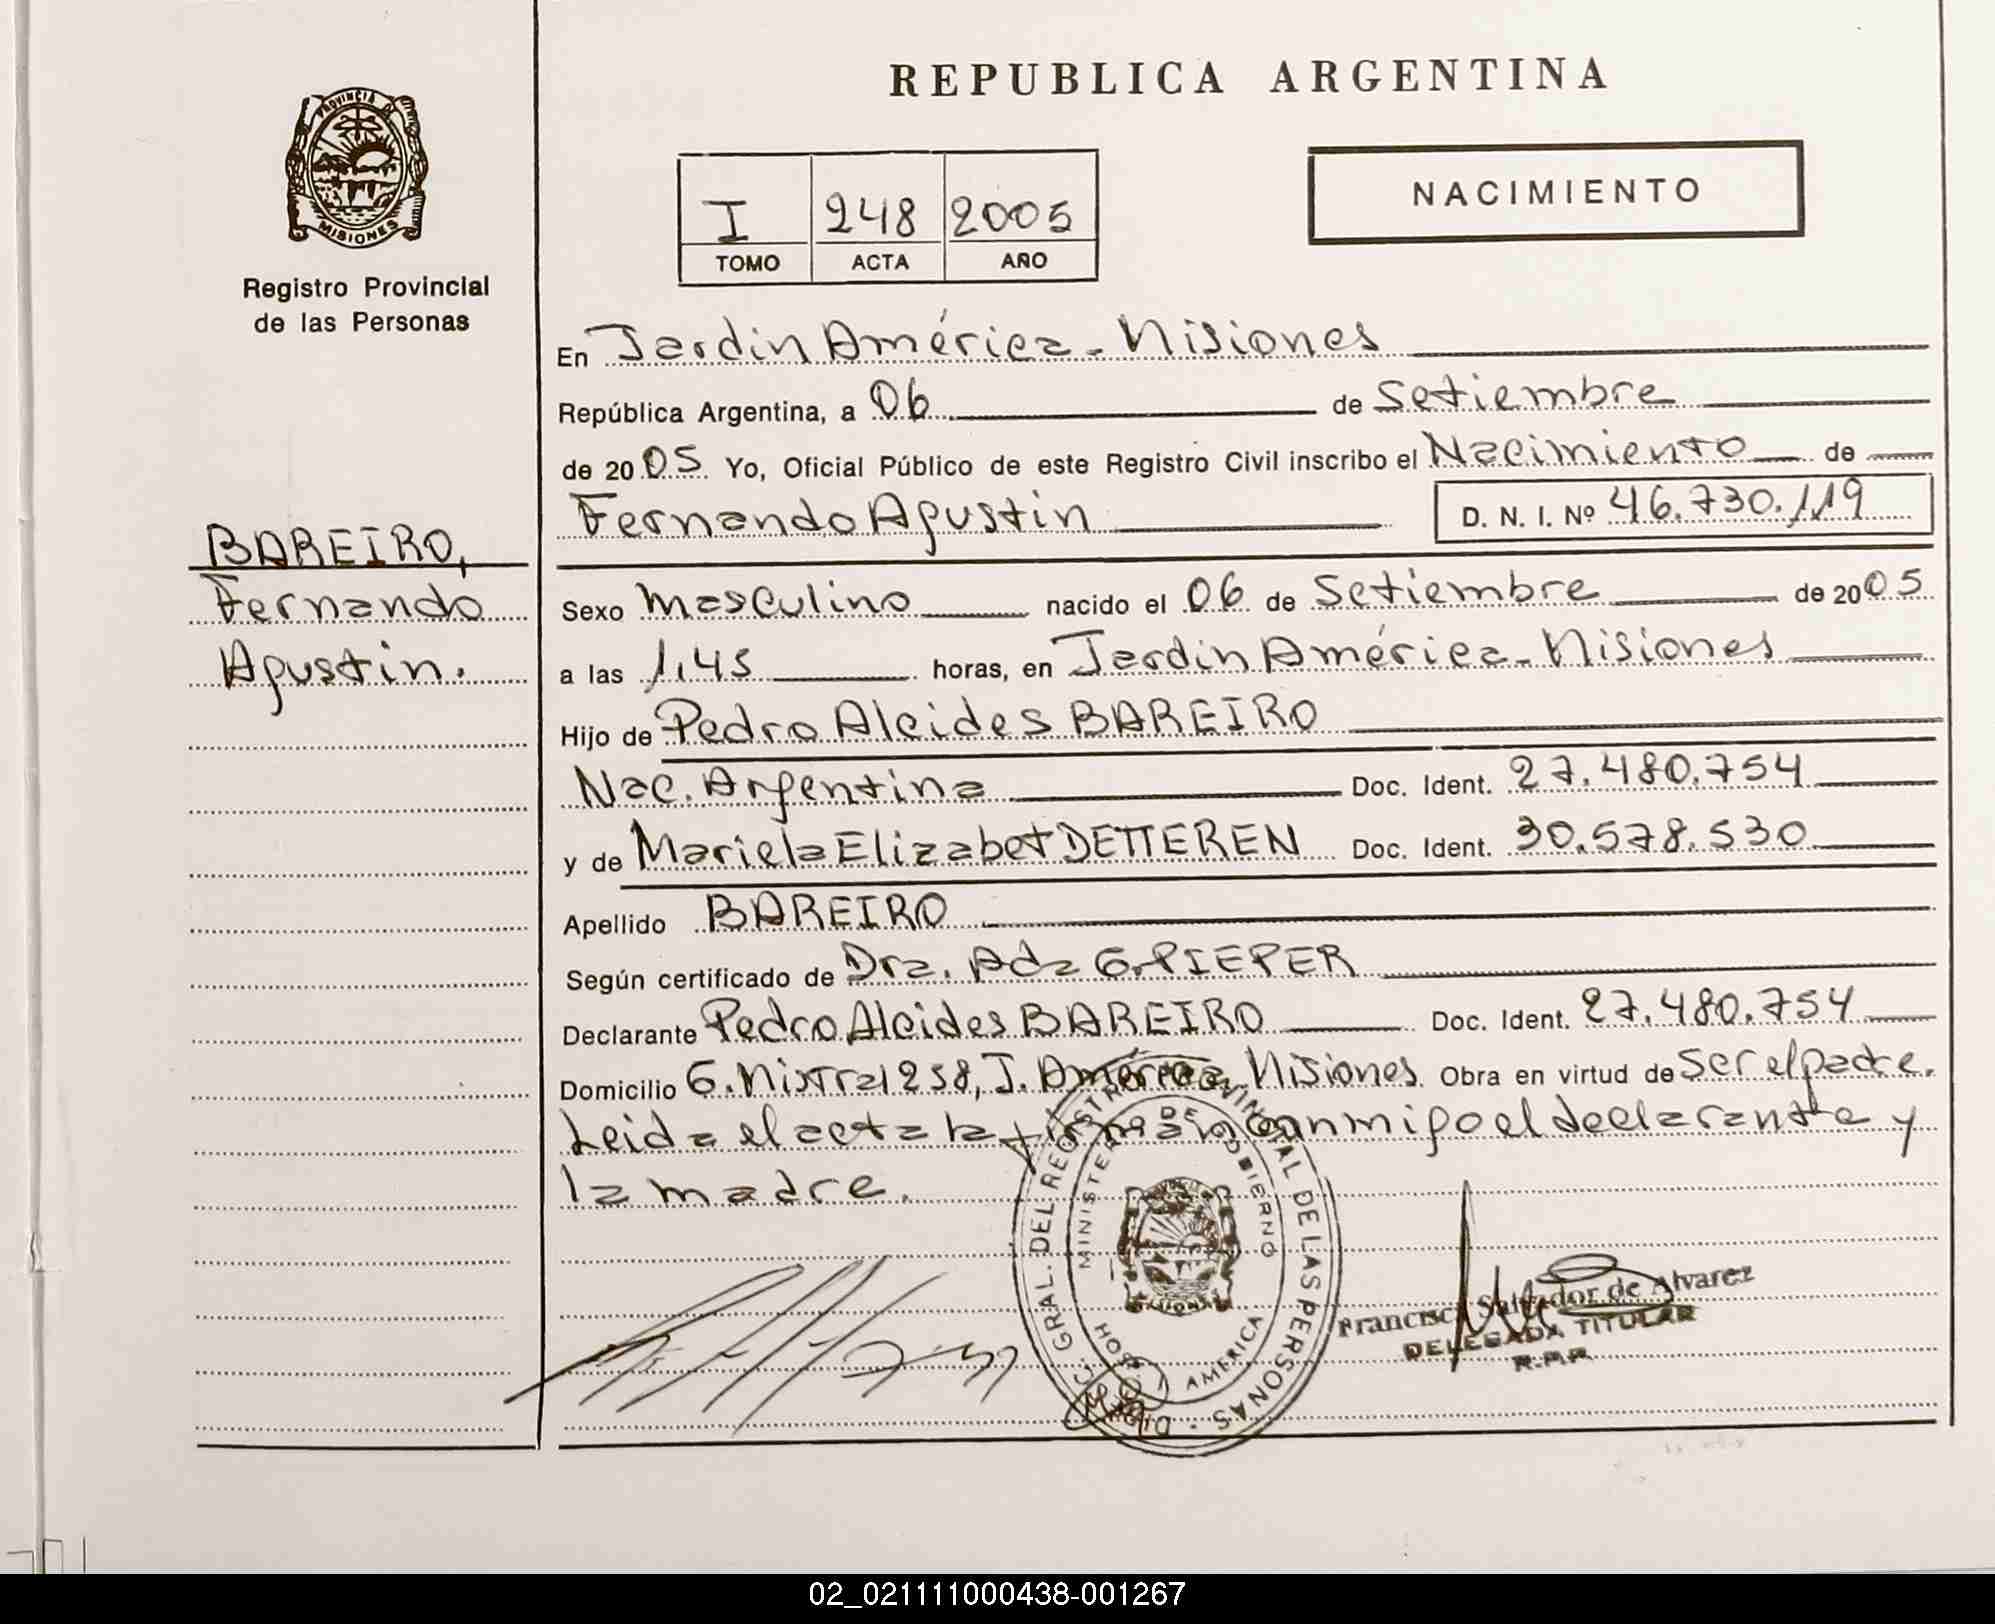 REPUBLICA ARGENTINA
PROVINCIA DE
MISIONES
Registro Provincial
de las Personas
I 248 2005
TOMO ACTA AÑO
NACIMIENTO
En Jardin América - Misiones
República Argentina, a 06 de Setiembre
de 2005 Yo, Oficial Público de este Registro Civil inscribo el Nacimiento de
Fernando Agustin D. N. I. Nº 46.730.119
BAREIRO,
Fernando
Agustin.
Sexo masculino nacido el 06 de Setiembre de 2005
a las 1,45 horas, en Jardin América - Misiones
Hijo de Pedro Alcides BAREIRO
Nac. Argentina Doc. Ident. 27.480.754
y de Mariela Elizabet DETTEREN Doc. Ident. 30.578.530
Apellido BAREIRO
Según certificado de Dra. Ada G. PIEPER
Declarante Pedro Alcides BAREIRO Doc. Ident. 27.480.754
Domicilio G. Mistral 258, J. América, Misiones. Obra en virtud de ser el padre.
Leida el acta la firman conmigo el declarante y
la madre.
GRAL. DEL REGISTRO PROVINCIAL DE LAS PERSONAS
MINISTERIO DE GOBIERNO
AMERICA
Francisca Salvador de Alvarez
DELEGADA TITULAR
R.P.P.
02_021111000438-001267